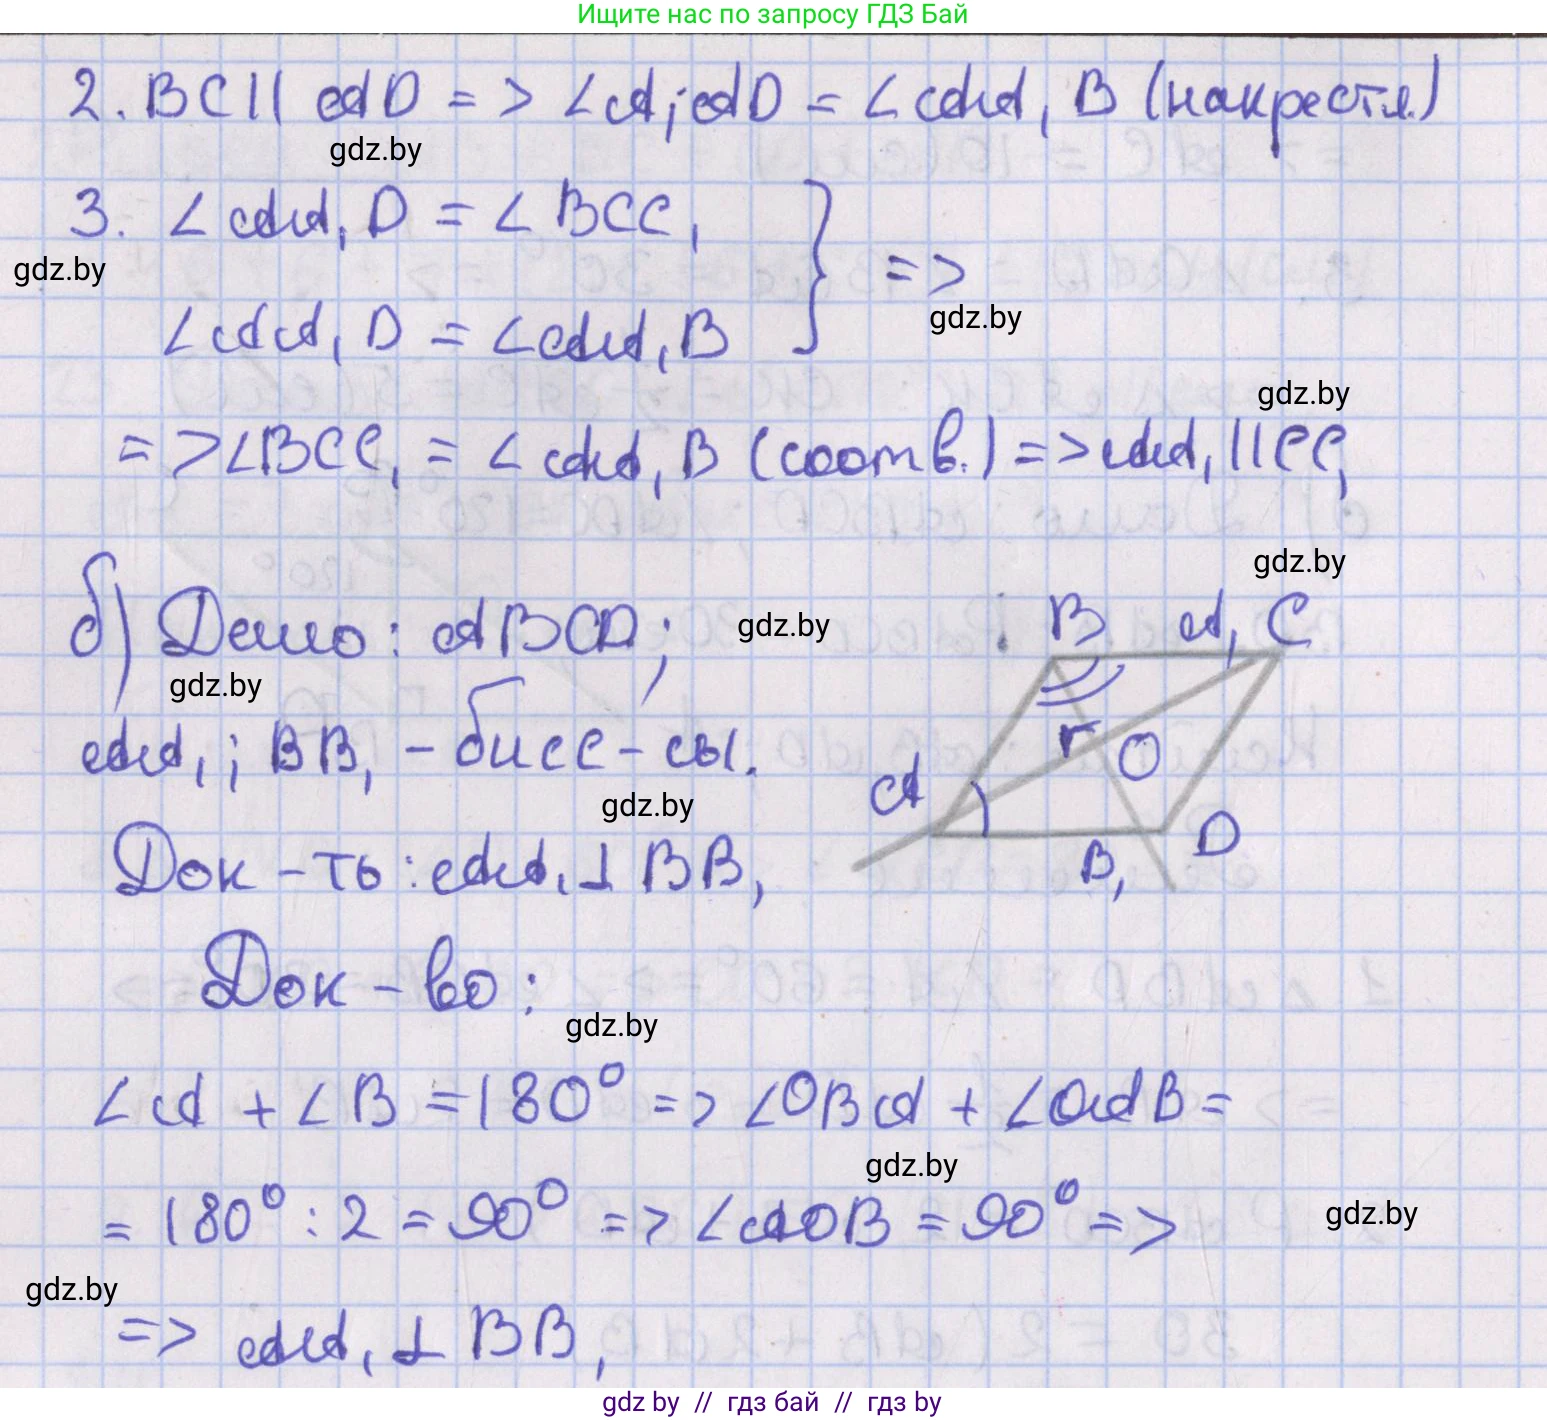 Ищите нас по запросу ГДЗ Бай
2. BC || AD => ∠A₁AD = ∠AA₁B (накрестл.)
gdz.by
3. ∠AA₁D = ∠BCC₁
gdz.by
=>
gdz.by
∠AA₁D = ∠AA₁B
gdz.by
=> ∠BCC₁ = ∠AA₁B (соотв.) => AA₁ || CC₁
gdz.by
б) Дано: ABCD;
gdz.by
gdz.by
B A₁ C
AA₁; BB₁ - бисс-сы.
O
gdz.by
A
B₁ D
Док-ть: AA₁ ⊥ BB₁
Док-во:
gdz.by
∠A + ∠B = 180° => ∠OBA + ∠OAB =
gdz.by
= 180° : 2 = 90° => ∠AOB = 90° =>
gdz.by
gdz.by
=> AA₁ ⊥ BB₁
gdz by // гдз бай // гдз by